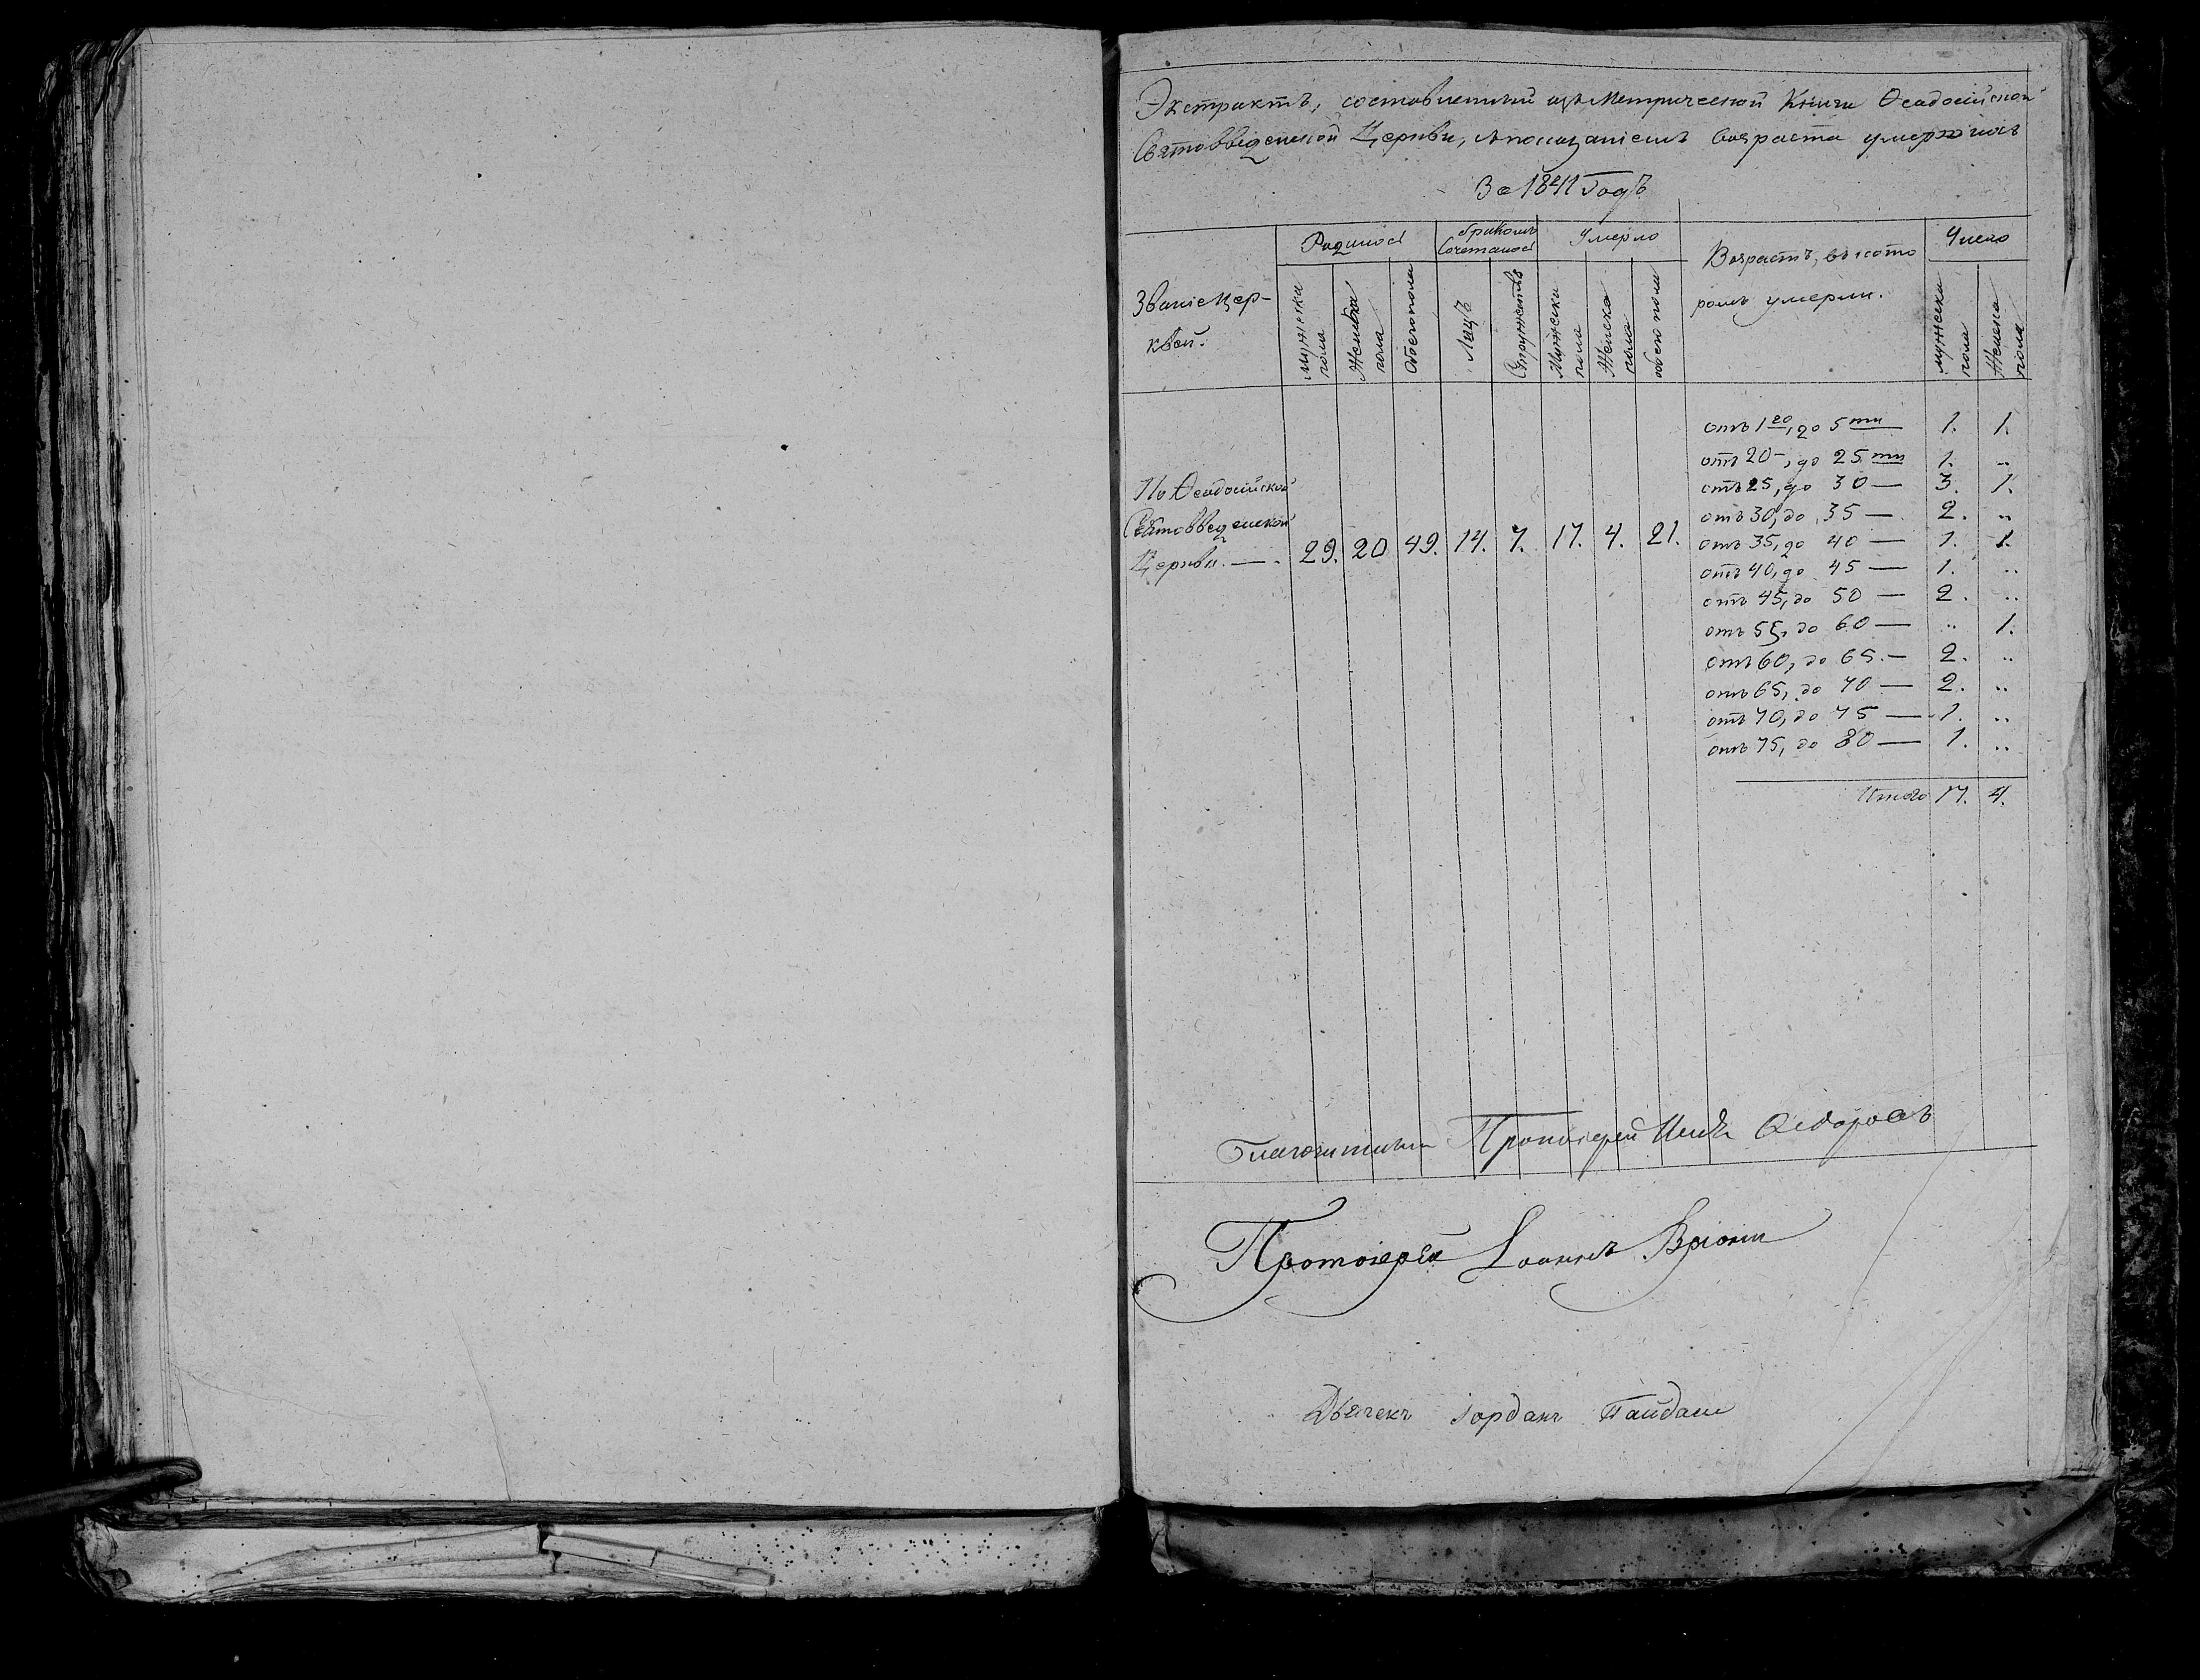 Экстрактъ, составленный изъ Метрической Книги Ѳеодосійской
Святовведенской Церкви, с показаніемъ возраста умершихъ
За 1841 Годъ
Званіе Цер-
квей.
Родилось
мужеска пола
Женска пола
Обоего пола
бракомъ Сочеталось
Лицъ
Супружествъ
Умерло
Мужеска пола
Женска пола
обоего пола
Возрастъ, въ кото
ромъ умерли.
Число
мужеска пола
Женска пола
По Ѳеодосійской
Святовведенской
Церкви. — 29. 20 49. 14. 7. 17. 4. 21.
отъ 1го, до 5ти 1. 1.
отъ 20-, до 25ти 1. „
отъ 25, до 30 — 3. 1.
отъ 30, до 35 — 2. „
отъ 35, до 40 — 1. 1.
отъ 40, до 45 — 1. „
отъ 45, до 50 — 2. „
отъ 55, до 60 — „ 1.
отъ 60, до 65. — 2. „
отъ 65, до 70 — 2. „
отъ 70, до 75 — 1. „
отъ 75, до 80 — 1. „
Итого 17. 4.
Благочинный Протоіерей Ѳедоровъ
Протоіерей Іоаннъ Вріони
Дьячекъ Іорданъ Пайдаши